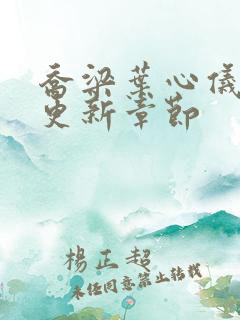 乔梁葉心儀
更新章節
楊正超
未经同意禁止转载